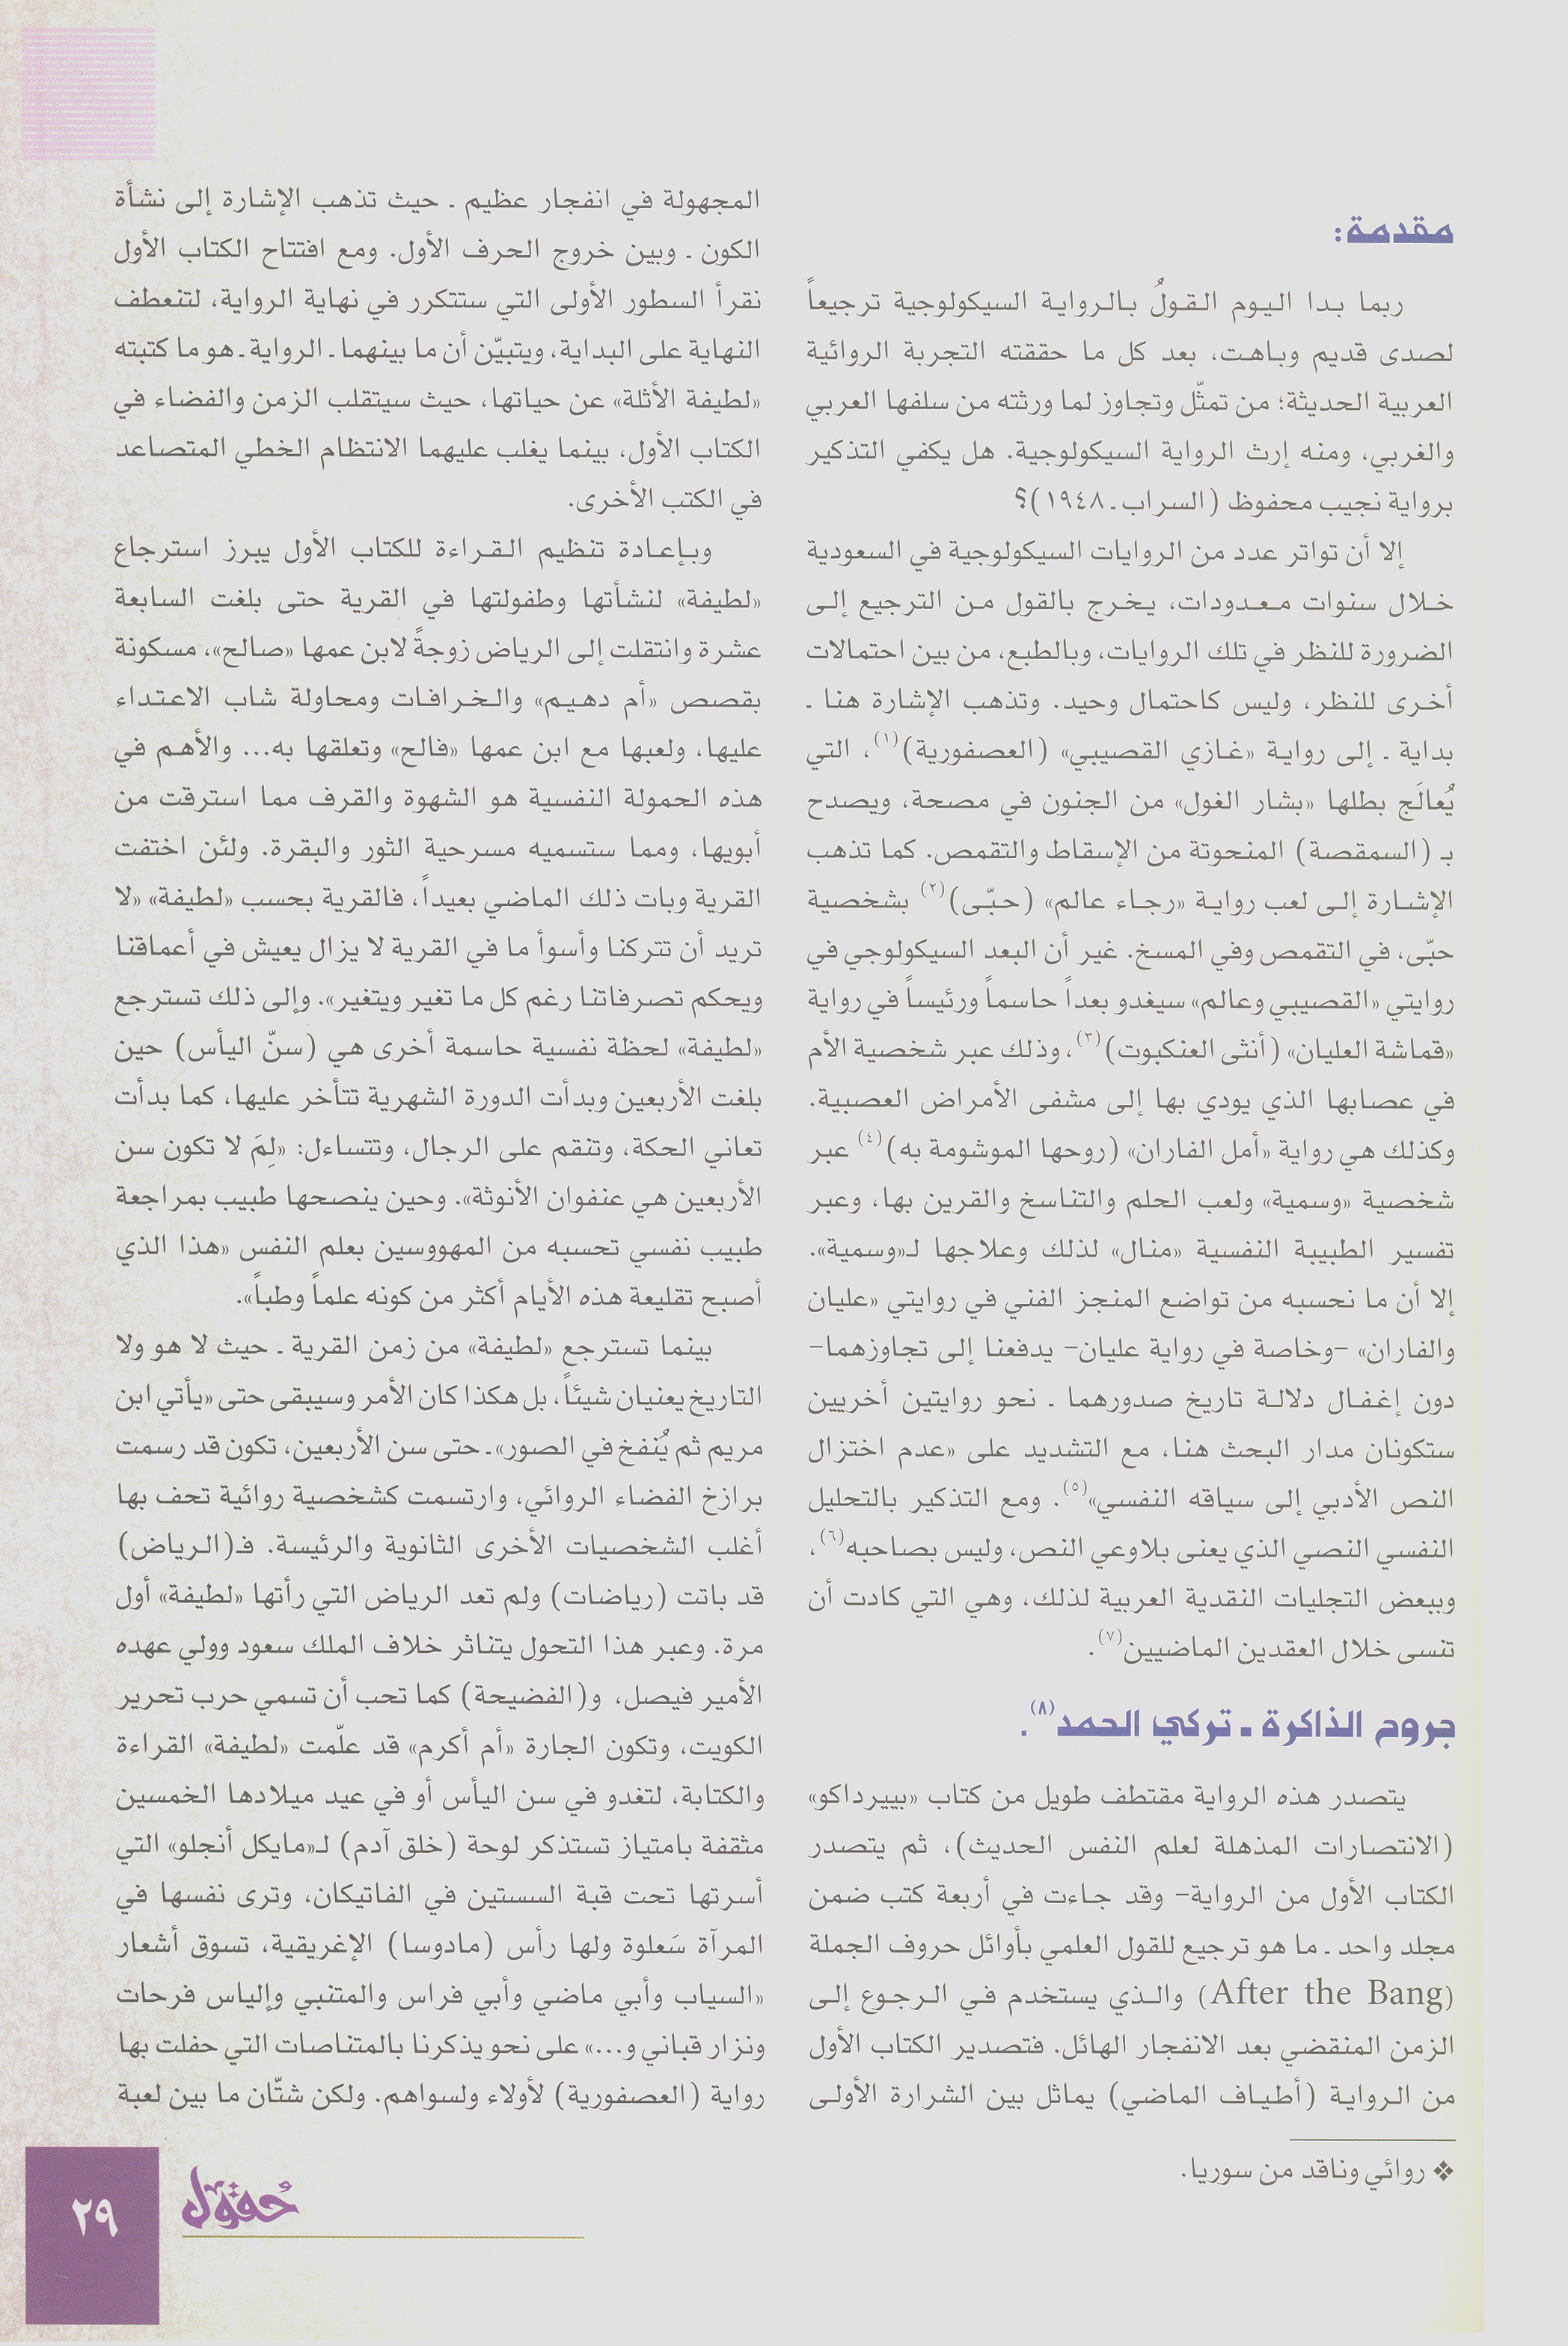 مقدمة:
ربما بدا اليوم القولُ بالرواية السيكولوجية ترجيعاً
لصدى قديم وباهت، بعد كل ما حققته التجربة الروائية
العربية الحديثة؛ من تمثّل وتجاوز لما ورثته من سلفها العربي
والغربي، ومنه إرث الرواية السيكولوجية. هل يكفي التذكير
برواية نجيب محفوظ (السراب ـ ١٩٤٨)؟
إلا أن تواتر عدد من الروايات السيكولوجية في السعودية
خلال سنوات معدودات، يخرج بالقول من الترجيع إلى
الضرورة للنظر في تلك الروايات، وبالطبع، من بين احتمالات
أخرى للنظر، وليس كاحتمال وحيد. وتذهب الإشارة هنا ـ
بداية ـ إلى رواية «غازي القصيبي» (العصفورية)(١)، التي
يُعالَج بطلها «بشار الغول» من الجنون في مصحة، ويصدح
بـ (السمقصة) المنحوتة من الإسقاط والتقمص. كما تذهب
الإشارة إلى لعب رواية «رجاء عالم» (حبّى)(٢) بشخصية
حبّى، في التقمص وفي المسخ. غير أن البعد السيكولوجي في
روايتي «القصيبي وعالم» سيغدو بعداً حاسماً ورئيساً في رواية
«قماشة العليان» (أنثى العنكبوت)(٣)، وذلك عبر شخصية الأم
في عصابها الذي يودي بها إلى مشفى الأمراض العصبية.
وكذلك هي رواية «أمل الفاران» (روحها الموشومة به)(٤) عبر
شخصية «وسمية» ولعب الحلم والتناسخ والقرين بها، وعبر
تفسير الطبيبة النفسية «منال» لذلك وعلاجها لـ«وسمية».
إلا أن ما نحسبه من تواضع المنجز الفني في روايتي «عليان
والفاران» –وخاصة في رواية عليان– يدفعنا إلى تجاوزهما–
دون إغفال دلالة تاريخ صدورهما ـ نحو روايتين أخريين
ستكونان مدار البحث هنا، مع التشديد على «عدم اختزال
النص الأدبي إلى سياقه النفسي»(٥). ومع التذكير بالتحليل
النفسي النصي الذي يعنى بلاوعي النص، وليس بصاحبه(٦)،
وببعض التجليات النقدية العربية لذلك، وهي التي كادت أن
تنسى خلال العقدين الماضيين(٧).
جروح الذاكرة ـ تركي الحمد(٨).
يتصدر هذه الرواية مقتطف طويل من كتاب «بييرداكو»
(الانتصارات المذهلة لعلم النفس الحديث)، ثم يتصدر
الكتاب الأول من الرواية– وقد جاءت في أربعة كتب ضمن
مجلد واحد ـ ما هو ترجيع للقول العلمي بأوائل حروف الجملة
(After the Bang) والذي يستخدم في الرجوع إلى
الزمن المنقضي بعد الانفجار الهائل. فتصدير الكتاب الأول
من الرواية (أطياف الماضي) يماثل بين الشرارة الأولى
❖ روائي وناقد من سوريا.
المجهولة في انفجار عظيم ـ حيث تذهب الإشارة إلى نشأة
الكون ـ وبين خروج الحرف الأول. ومع افتتاح الكتاب الأول
نقرأ السطور الأولى التي ستتكرر في نهاية الرواية، لتنعطف
النهاية على البداية، ويتبيّن أن ما بينهما ـ الرواية ـ هو ما كتبته
«لطيفة الأثلة» عن حياتها، حيث سيتقلب الزمن والفضاء في
الكتاب الأول، بينما يغلب عليهما الانتظام الخطي المتصاعد
في الكتب الأخرى.
وبإعادة تنظيم القراءة للكتاب الأول يبرز استرجاع
«لطيفة» لنشأتها وطفولتها في القرية حتى بلغت السابعة
عشرة وانتقلت إلى الرياض زوجةً لابن عمها «صالح»، مسكونة
بقصص «أم دهيم» والخرافات ومحاولة شاب الاعتداء
عليها، ولعبها مع ابن عمها «فالح» وتعلقها به... والأهم في
هذه الحمولة النفسية هو الشهوة والقرف مما استرقت من
أبويها، ومما ستسميه مسرحية الثور والبقرة. ولئن اختفت
القرية وبات ذلك الماضي بعيداً، فالقرية بحسب «لطيفة» «لا
تريد أن تتركنا وأسوأ ما في القرية لا يزال يعيش في أعماقنا
ويحكم تصرفاتنا رغم كل ما تغير ويتغير». وإلى ذلك تسترجع
«لطيفة» لحظة نفسية حاسمة أخرى هي (سنّ اليأس) حين
بلغت الأربعين وبدأت الدورة الشهرية تتأخر عليها، كما بدأت
تعاني الحكة، وتنقم على الرجال، وتتساءل: «لِمَ لا تكون سن
الأربعين هي عنفوان الأنوثة». وحين ينصحها طبيب بمراجعة
طبيب نفسي تحسبه من المهووسين بعلم النفس «هذا الذي
أصبح تقليعة هذه الأيام أكثر من كونه علماً وطباً».
بينما تسترجع «لطيفة» من زمن القرية ـ حيث لا هو ولا
التاريخ يعنيان شيئاً، بل هكذا كان الأمر وسيبقى حتى «يأتي ابن
مريم ثم يُنفخ في الصور»ـ حتى سن الأربعين، تكون قد رسمت
برازخ الفضاء الروائي، وارتسمت كشخصية روائية تحف بها
أغلب الشخصيات الأخرى الثانوية والرئيسة. فـ(الرياض)
قد باتت (رياضات) ولم تعد الرياض التي رأتها «لطيفة» أول
مرة. وعبر هذا التحول يتناثر خلاف الملك سعود وولي عهده
الأمير فيصل، و(الفضيحة) كما تحب أن تسمي حرب تحرير
الكويت، وتكون الجارة «أم أكرم» قد علّمت «لطيفة» القراءة
والكتابة، لتغدو في سن اليأس أو في عيد ميلادها الخمسين
مثقفة بامتياز تستذكر لوحة (خلق آدم) لـ«مايكل أنجلو» التي
أسرتها تحت قبة السستين في الفاتيكان، وترى نفسها في
المرآة سَعلوة ولها رأس (مادوسا) الإغريقية، تسوق أشعار
«السياب وأبي ماضي وأبي فراس والمتنبي وإلياس فرحات
ونزار قباني و...» على نحو يذكرنا بالمتناصات التي حفلت بها
رواية (العصفورية) لأولاء ولسواهم. ولكن شتّان ما بين لعبة
حُقول
٢٩